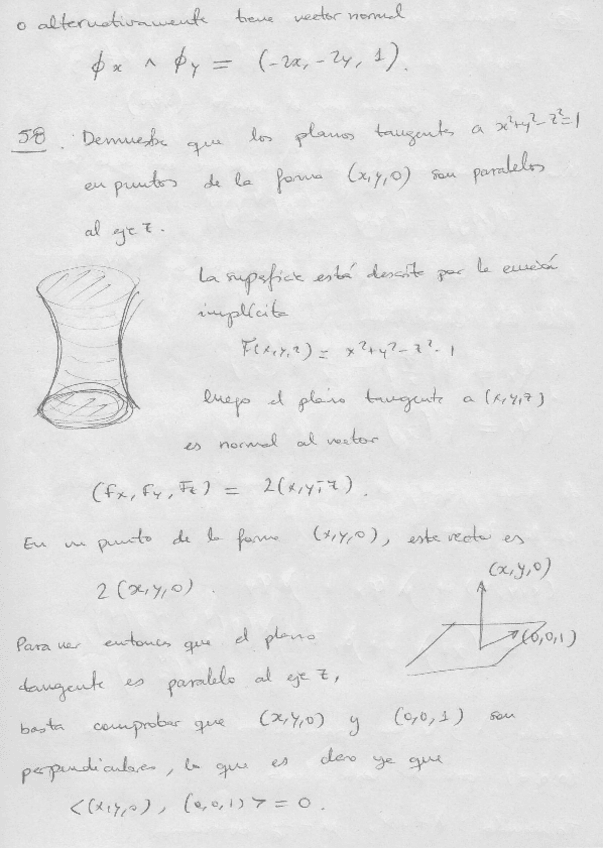 o alternativamente tiene vector normal
ϕx ∧ ϕy = (-2x, -2y, 1).
58. Demuestra que los planos tangentes a x²+y²-z²=1
en puntos de la forma (x,y,0) son paralelos
al eje z.
La superficie está descrita por la ecuación
implícita
F(x,y,z) = x²+y²-z²-1
luego el plano tangente a (x,y,z)
es normal al vector
(Fx, Fy, Fz) = 2(x,y,-z).
En un punto de la forma (x,y,0), este vector es
2(x,y,0).
(x,y,0)
(0,0,1)
Para ver entonces que el plano
tangente es paralelo al eje z,
basta comprobar que (x,y,0) y (0,0,1) son
perpendiculares, lo que es claro ya que
<(x,y,0), (0,0,1)> = 0.